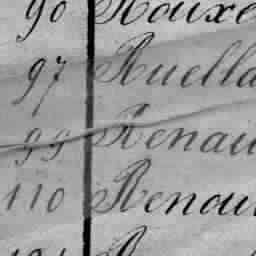 90 Rouxe
97 Ruella
99 Renau
110 Renou